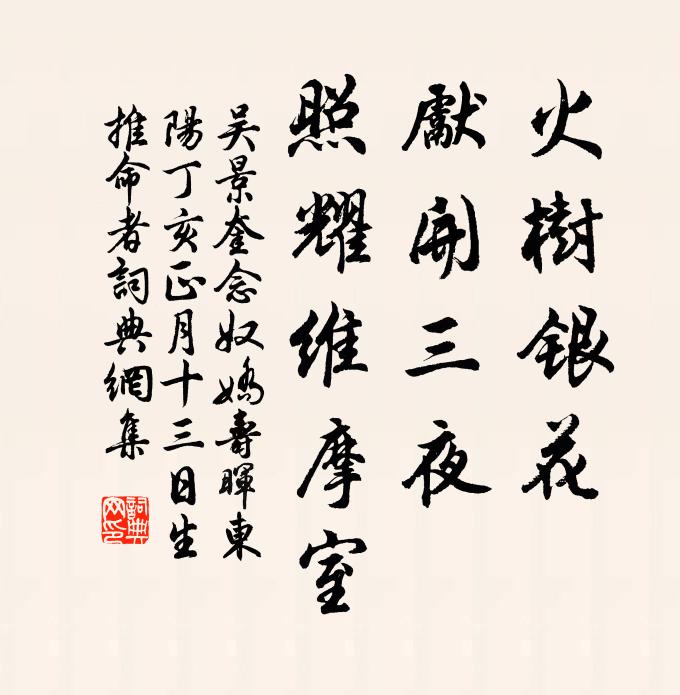 火樹銀花
獻開三夜
照耀維摩室
吴景奎念奴嬌壽暉東
陽丁亥正月十三日生
推命者詞典網集
詞典
网印